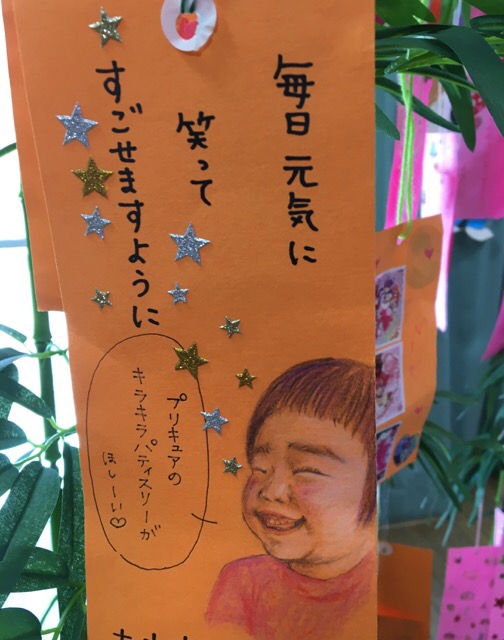 毎日元気に
笑って
すごせますように
プリキュアの
キラキラパティスリーが
ほしーい♡